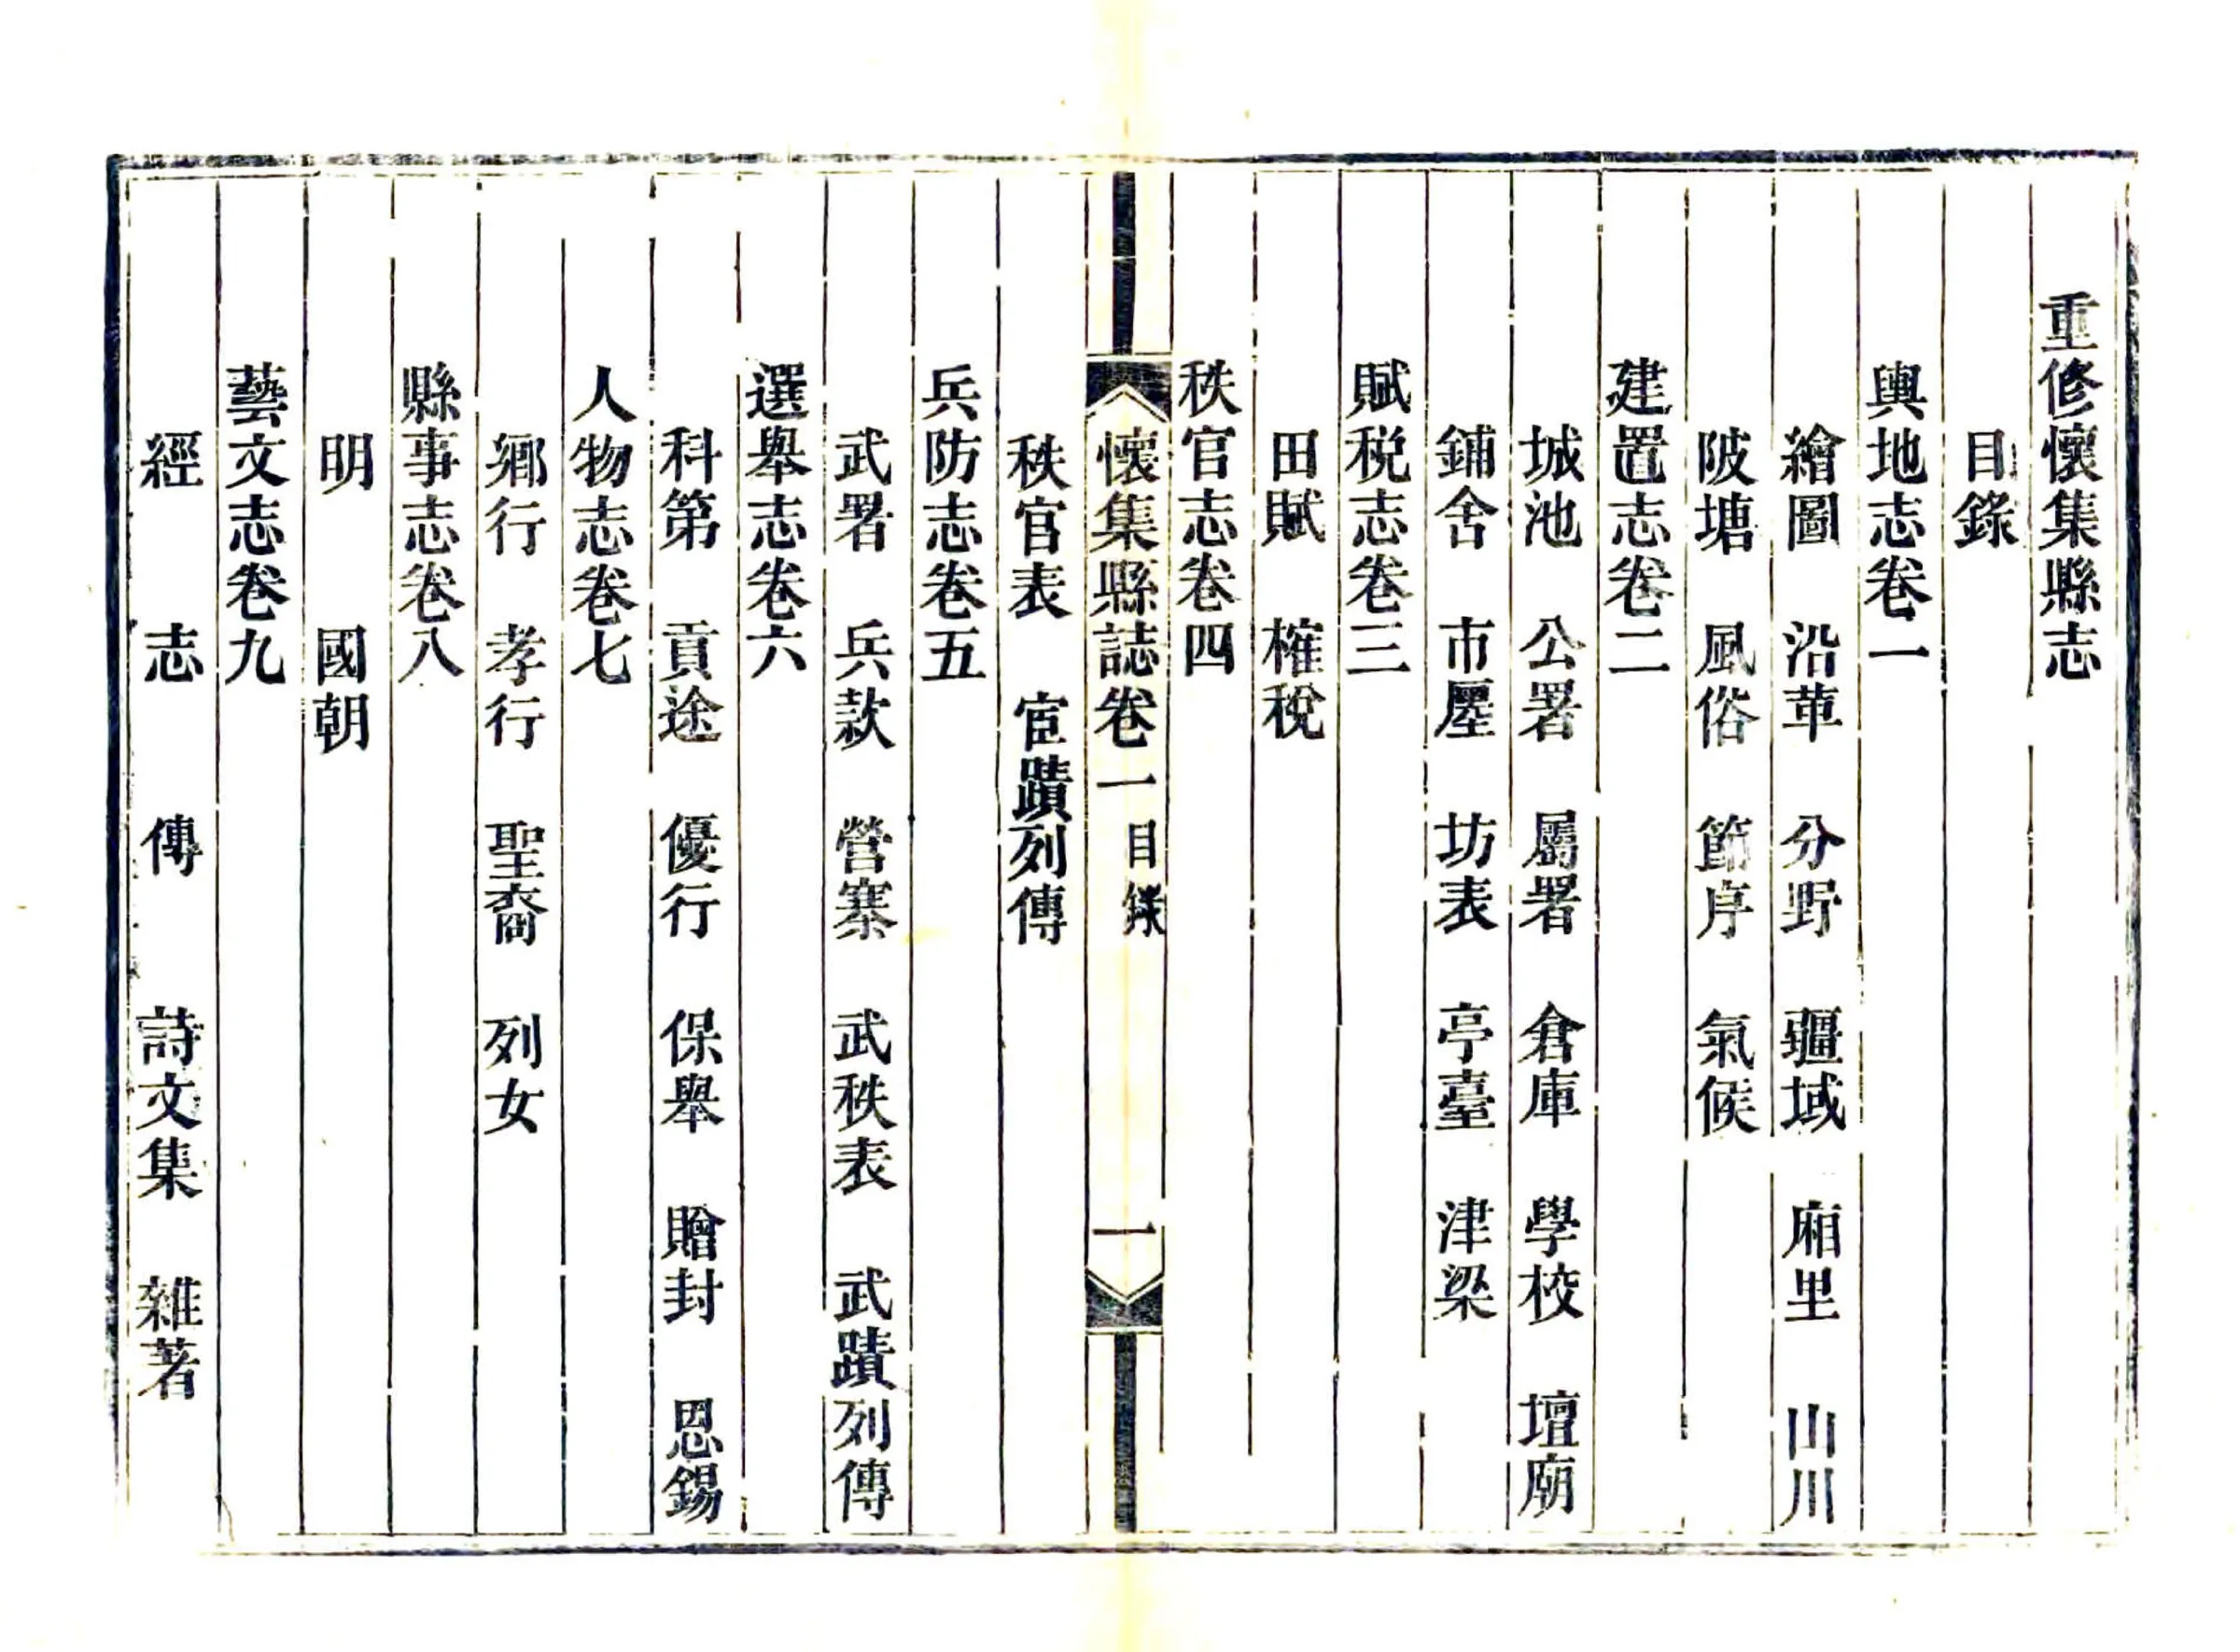 重修懷集縣志
目錄
輿地志卷一
繪圖　沿革　分野　疆域　廂里　山川
陂塘　風俗　節序　氣候
建置志卷二
城池　公署　屬署　倉庫　學校　壇廟
鋪舍　市廛　坊表　亭臺　津梁
賦税志卷三
田賦　榷稅
秩官志卷四
懷集縣誌卷一　目錄　一
秩官表　宦蹟列傳
兵防志卷五
武署　兵款　營寨　武秩表　武蹟列傳
選舉志卷六
科第　貢途　優行　保舉　贈封　恩錫
人物志卷七
鄉行　孝行　聖裔　列女
縣事志卷八
明　國朝
藝文志卷九
經　志　傳　詩文集　雜著